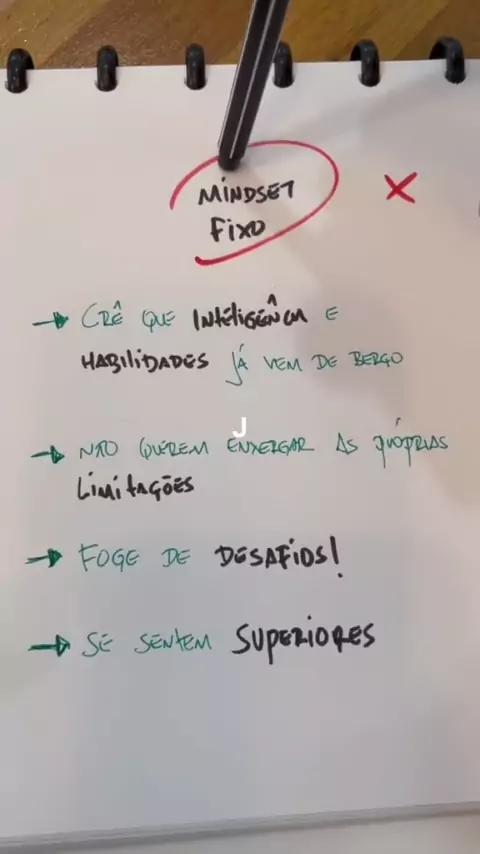 MINDSET
FIXO
X
→ CRÊ QUE INTELIGÊNCIA E
HABILIDADES JÁ VEM DE BERÇO
J
→ NÃO QUEREM ENXERGAR AS PRÓPRIAS
LIMITAÇÕES
→ FOGE DE DESAFIOS!
→ SE SENTEM SUPERIORES